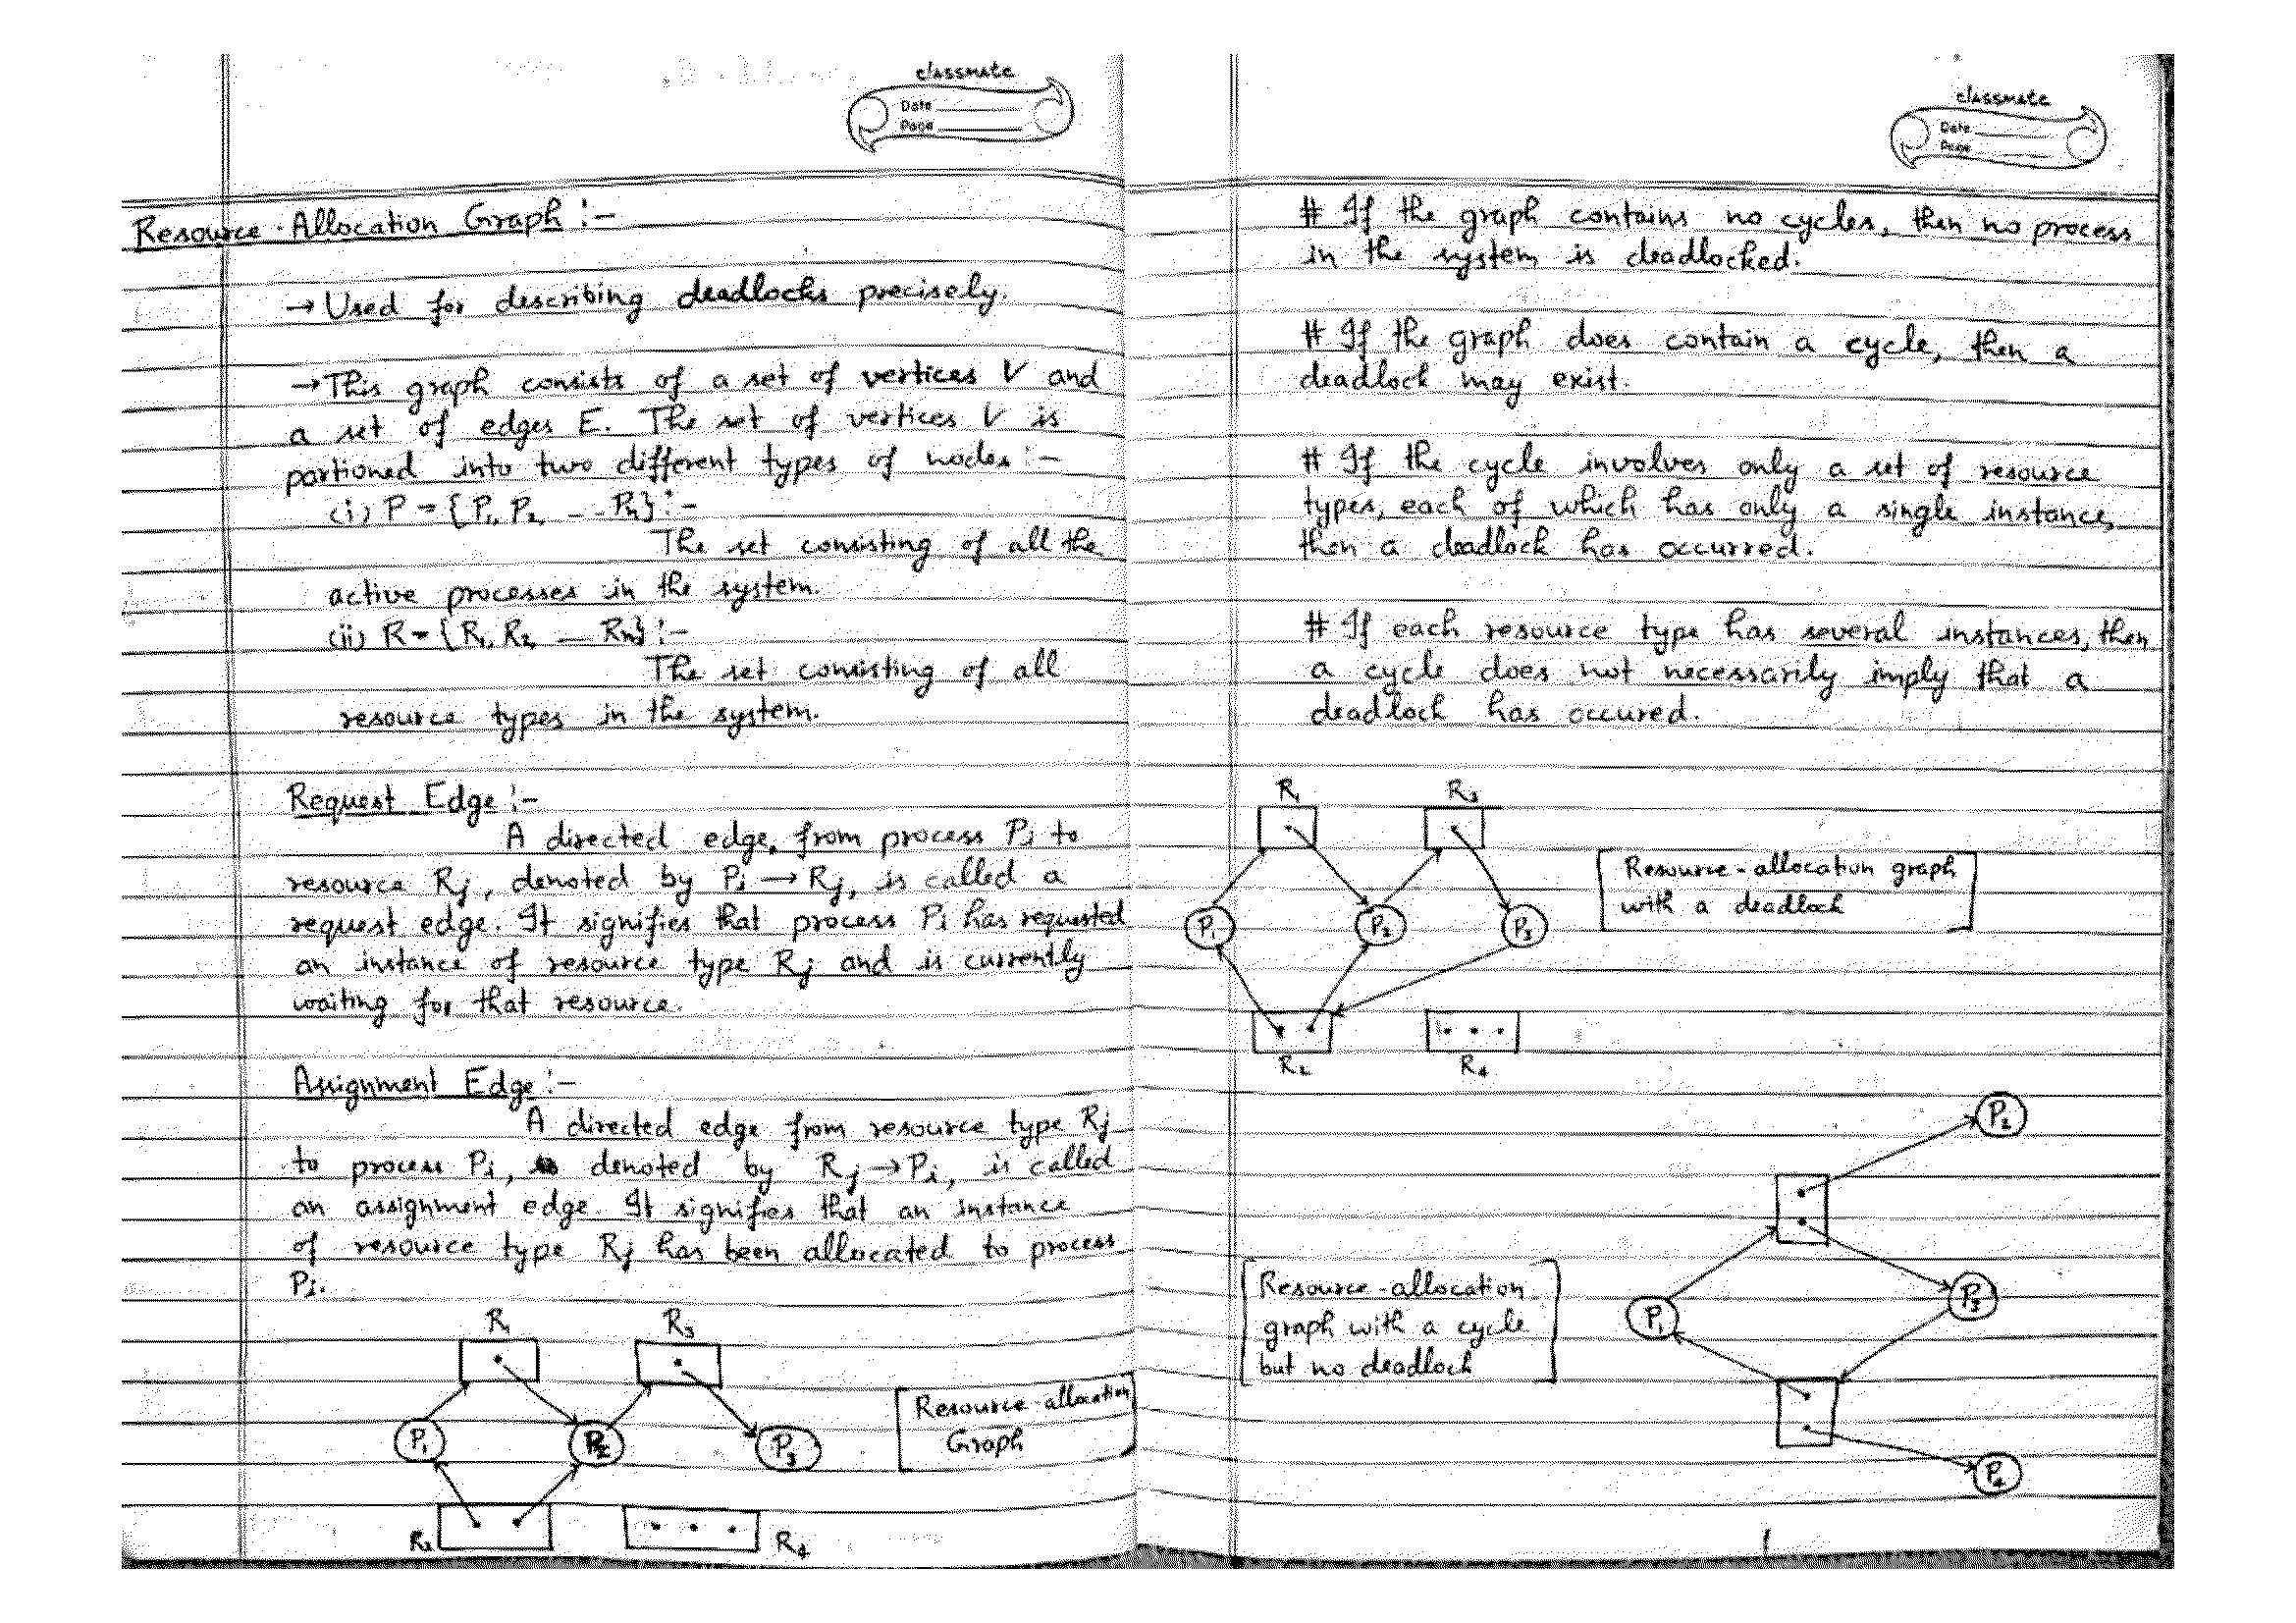 classmate
Date
Page
Resource-Allocation Graph :-
→ Used for describing deadlocks precisely.
→ This graph consists of a set of vertices V and
a set of edges E. The set of vertices V is
partioned into two different types of nodes :-
(i) P = {P1, P2, -- Pn} :-
The set consisting of all the
active processes in the system.
(ii) R = {R1, R2, -- Rn} :-
The set consisting of all
resource types in the system.
Request Edge :-
A directed edge, from process Pi to
resource Rj, denoted by Pi → Rj, is called a
request edge. It signifies that process Pi has requested
an instance of resource type Rj and is currently
waiting for that resource.
Assignment Edge :-
A directed edge from resource type Rj
to process Pi, denoted by Rj → Pi, is called
an assignment edge. It signifies that an instance
of resource type Rj has been allocated to process
Pi.
R1 R3
P1 P2 P3
Resource-allocation
Graph
R2 R4
classmate
Date
Page
# If the graph contains no cycles, then no process
in the system is deadlocked.
# If the graph does contain a cycle, then a
deadlock may exist.
# If the cycle involves only a set of resource
types, each of which has only a single instance,
then a deadlock has occurred.
# If each resource type has several instances, then
a cycle does not necessarily imply that a
deadlock has occured.
R1 R3
Resource-allocation graph
with a deadlock
P1 P2 P3
R2 R4
P2
Resource-allocation
graph with a cycle
but no deadlock
P1 P3
P4